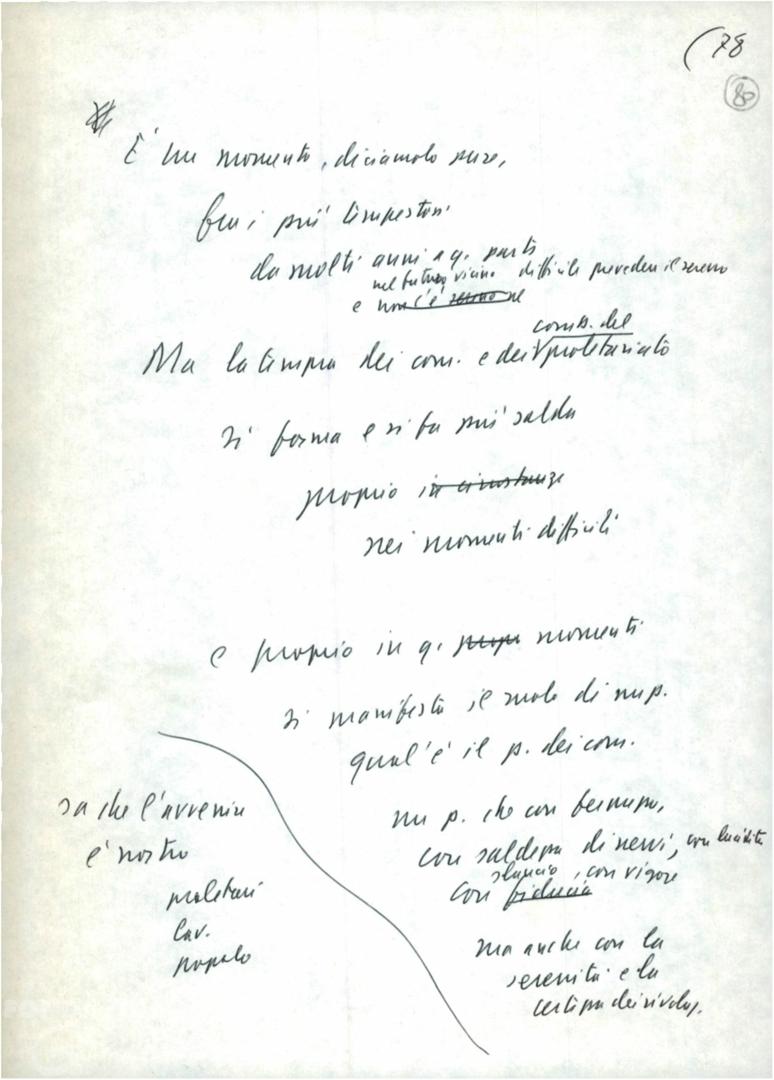 (78
80
È un momento, diciamolo pure,
fra i più tempestosi
da molti anni a q. parte
nel futuro vicino difficile prevedere il sereno
e non c'è sereno ne
comb. del
Ma la tempra dei com. e dei proletariato
si forma e si fa più salda
proprio in circostanze
nei momenti difficili
e proprio in q. momenti
si manifesta il ruolo di un p.
qual'è il p. dei com.
un p. che con fermezza,
con saldezza di nervi, con lucidità
slancio, con vigore
con fiducia
ma anche con la
serenità e la
certezza dei rivoluz.
sa che l'avvenire
è nostro
proletari
lav.
popolo